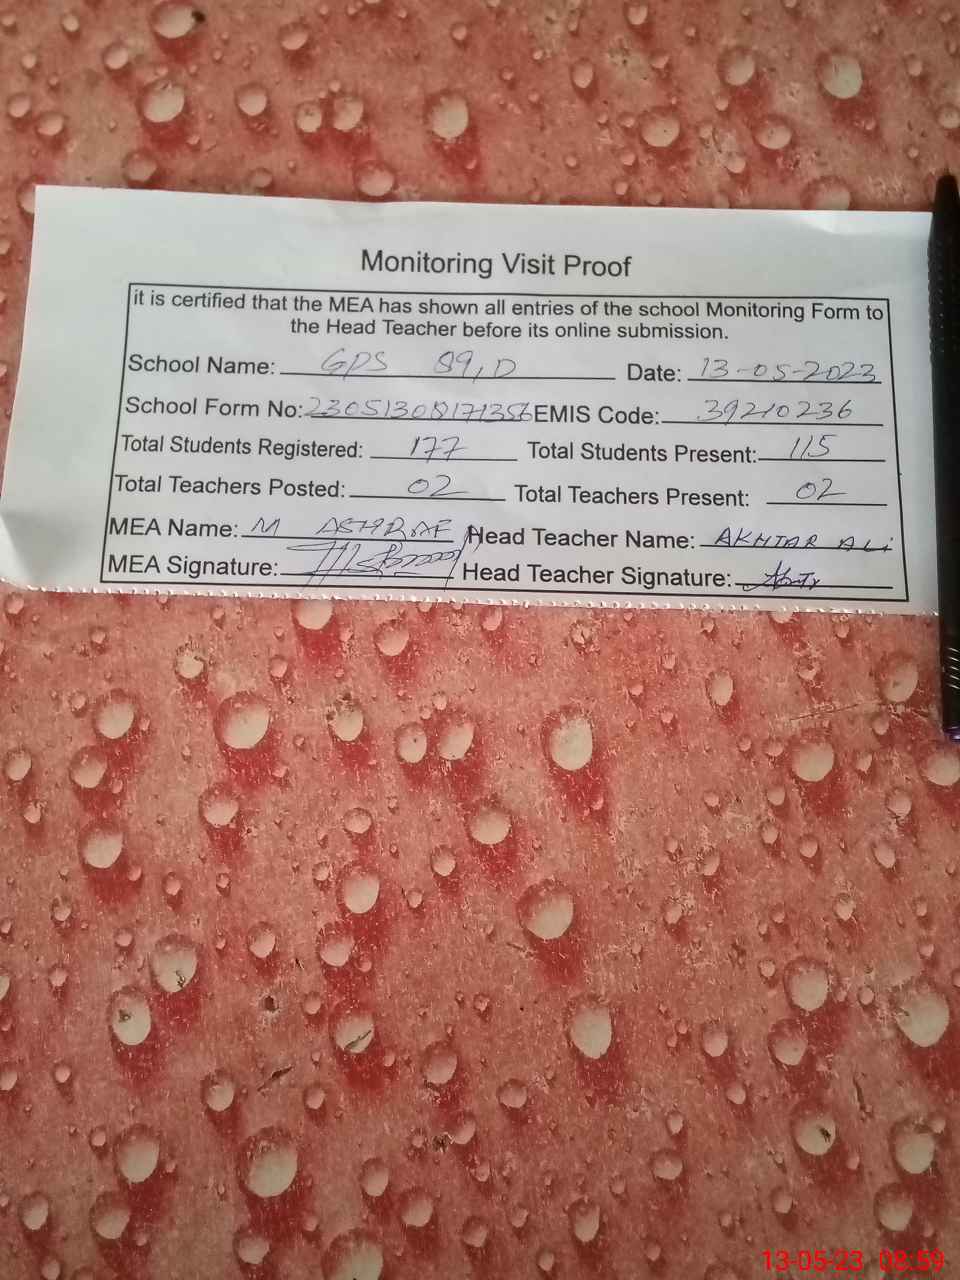 Monitoring Visit Proof
it is certified that the MEA has shown all entries of the school Monitoring Form to
the Head Teacher before its online submission.
School Name: GPS 89, D Date: 13-05-2023
School Form No: EMIS Code: 39210236
Total Students Registered: 177 Total Students Present: 115
Total Teachers Posted: 02 Total Teachers Present: 02
MEA Name: M ASHRAF Head Teacher Name: AKHTAR ALI
MEA Signature: Head Teacher Signature:
13-05-23 08:59